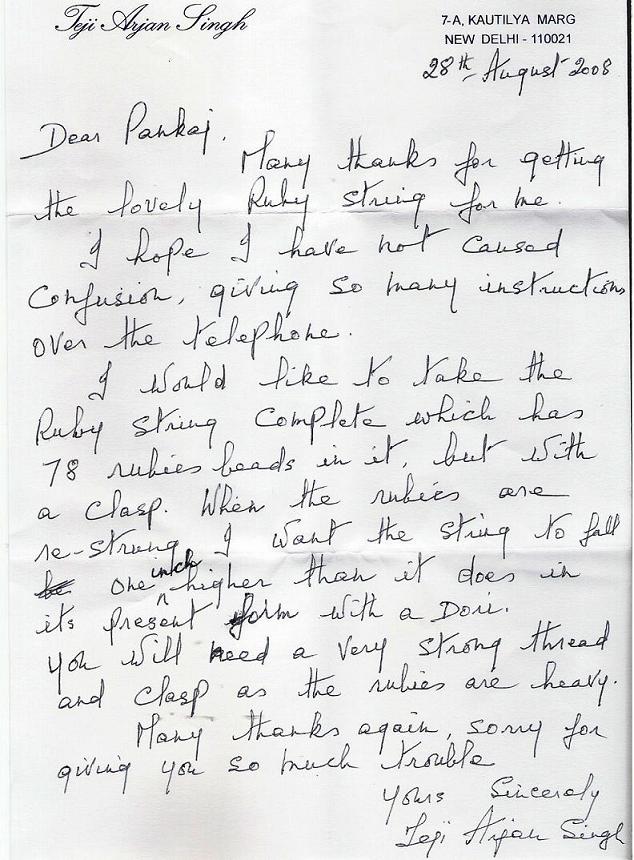 Teji Arjan Singh
7-A, KAUTILYA MARG
NEW DELHI - 110021
28th August 2008
Dear Pankaj.
Many thanks for getting
the lovely Ruby string for me.
I hope I have not caused
Confusion, giving so many instructions
over the telephone.
I would like to take the
Ruby String Complete which has
78 rubies beads in it, but with
a clasp. When the rubies are
re-strung I want the string to fall
one inch higher than it does in
its present form with a Dori.
you will need a very strong thread
and clasp as the rubies are heavy.
Many thanks again, sorry for
giving you so much trouble
yours Sincerely
Teji Arjan Singh